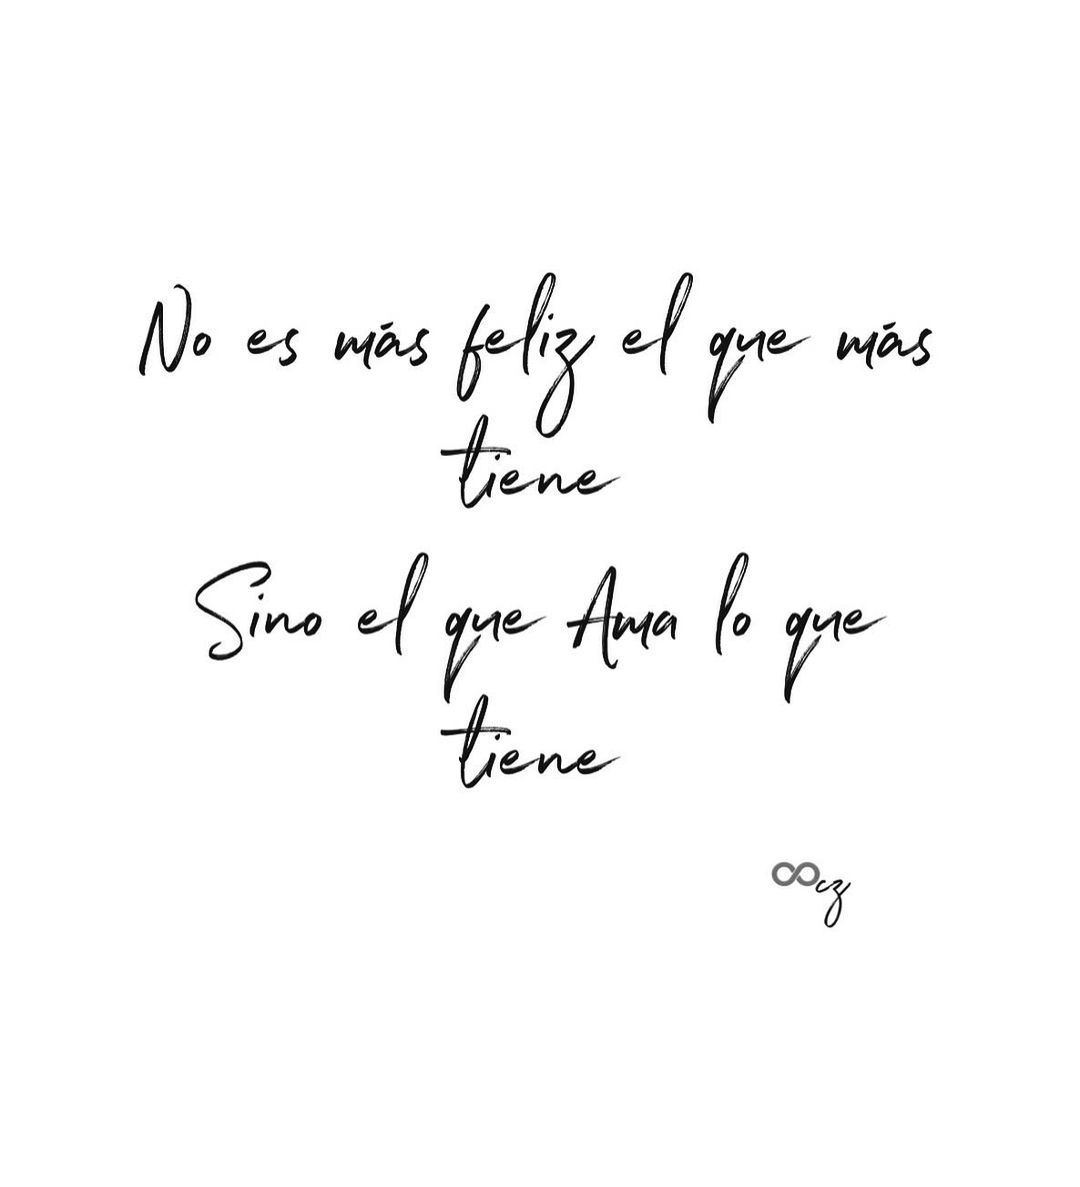 No es más feliz el que más
tiene
Sino el que Ama lo que
tiene
∞cz